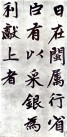 日在閩属行省
臣有以采銀為
利獻上者